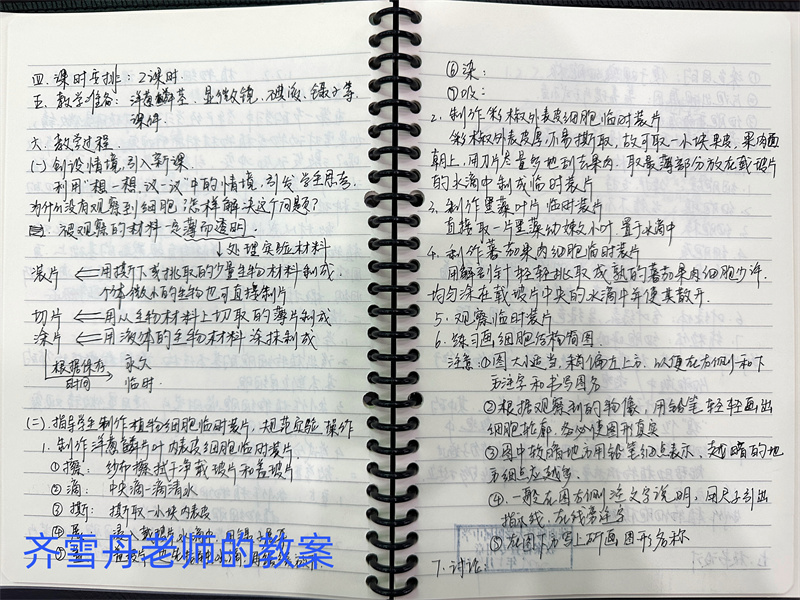 四. 课时安排: 2课时.
五. 教学准备: 洋葱鳞茎、显微镜、碘液、镊子等.
课件.
六. 教学过程.
(一) 创设情境, 引入新课.
利用"想一想, 议一议"中的情境, 引发学生思考,
为什么没有观察到细胞? 怎样解决这个问题?
被观察的材料一定薄而透明.
↓处理实验材料
装片 ⇐ 用撕下或挑取的少量生物材料制成.
个体微小的生物也可直接制片
切片 ⇐ 用从生物材料上切取的薄片制成
涂片 ⇐ 用液体的生物材料涂抹制成
根据保存 永久
时间 临时.
(二) 指导学生制作植物细胞临时装片, 规范实验操作
1. 制作洋葱鳞片叶内表皮细胞临时装片
①擦: 纱布擦拭干净载玻片和盖玻片
②滴: 中央滴一滴清水
③撕: 撕取一小块内表皮
齐雪丹老师的教案
⑥染:
⑦吸:
2. 制作彩椒外表皮细胞临时装片
彩椒外表皮厚不易撕取, 故可取一小块果皮, 果肉面
朝上, 用刀片尽量多地刮去果肉. 取最薄部分放在载玻片
的水滴中制成临时装片
3. 制作黑藻叶片临时装片
直接取一片黑藻幼嫩小叶 置于水滴中
4. 制作蕃茄果肉细胞临时装片
用解剖针轻轻挑取成熟的蕃茄果肉细胞少许.
均匀涂在载玻片中央的水滴中并使其散开.
5. 观察临时装片
6. 练习画细胞结构简图
注意: ①图大小适当, 稍偏左上方. 以便在右侧和下
方注字和书写图名
②根据观察到的物像, 用铅笔轻轻画出
细胞轮廓. 务必使图形真实
③图中较暗地方用铅笔细点表示, 越暗的地
方细点应越多.
④. 一般在图右侧注文字说明, 用尺子引出
指示线, 在线旁注字
⑤在图下方写上所画图形名称
7. 讨论: